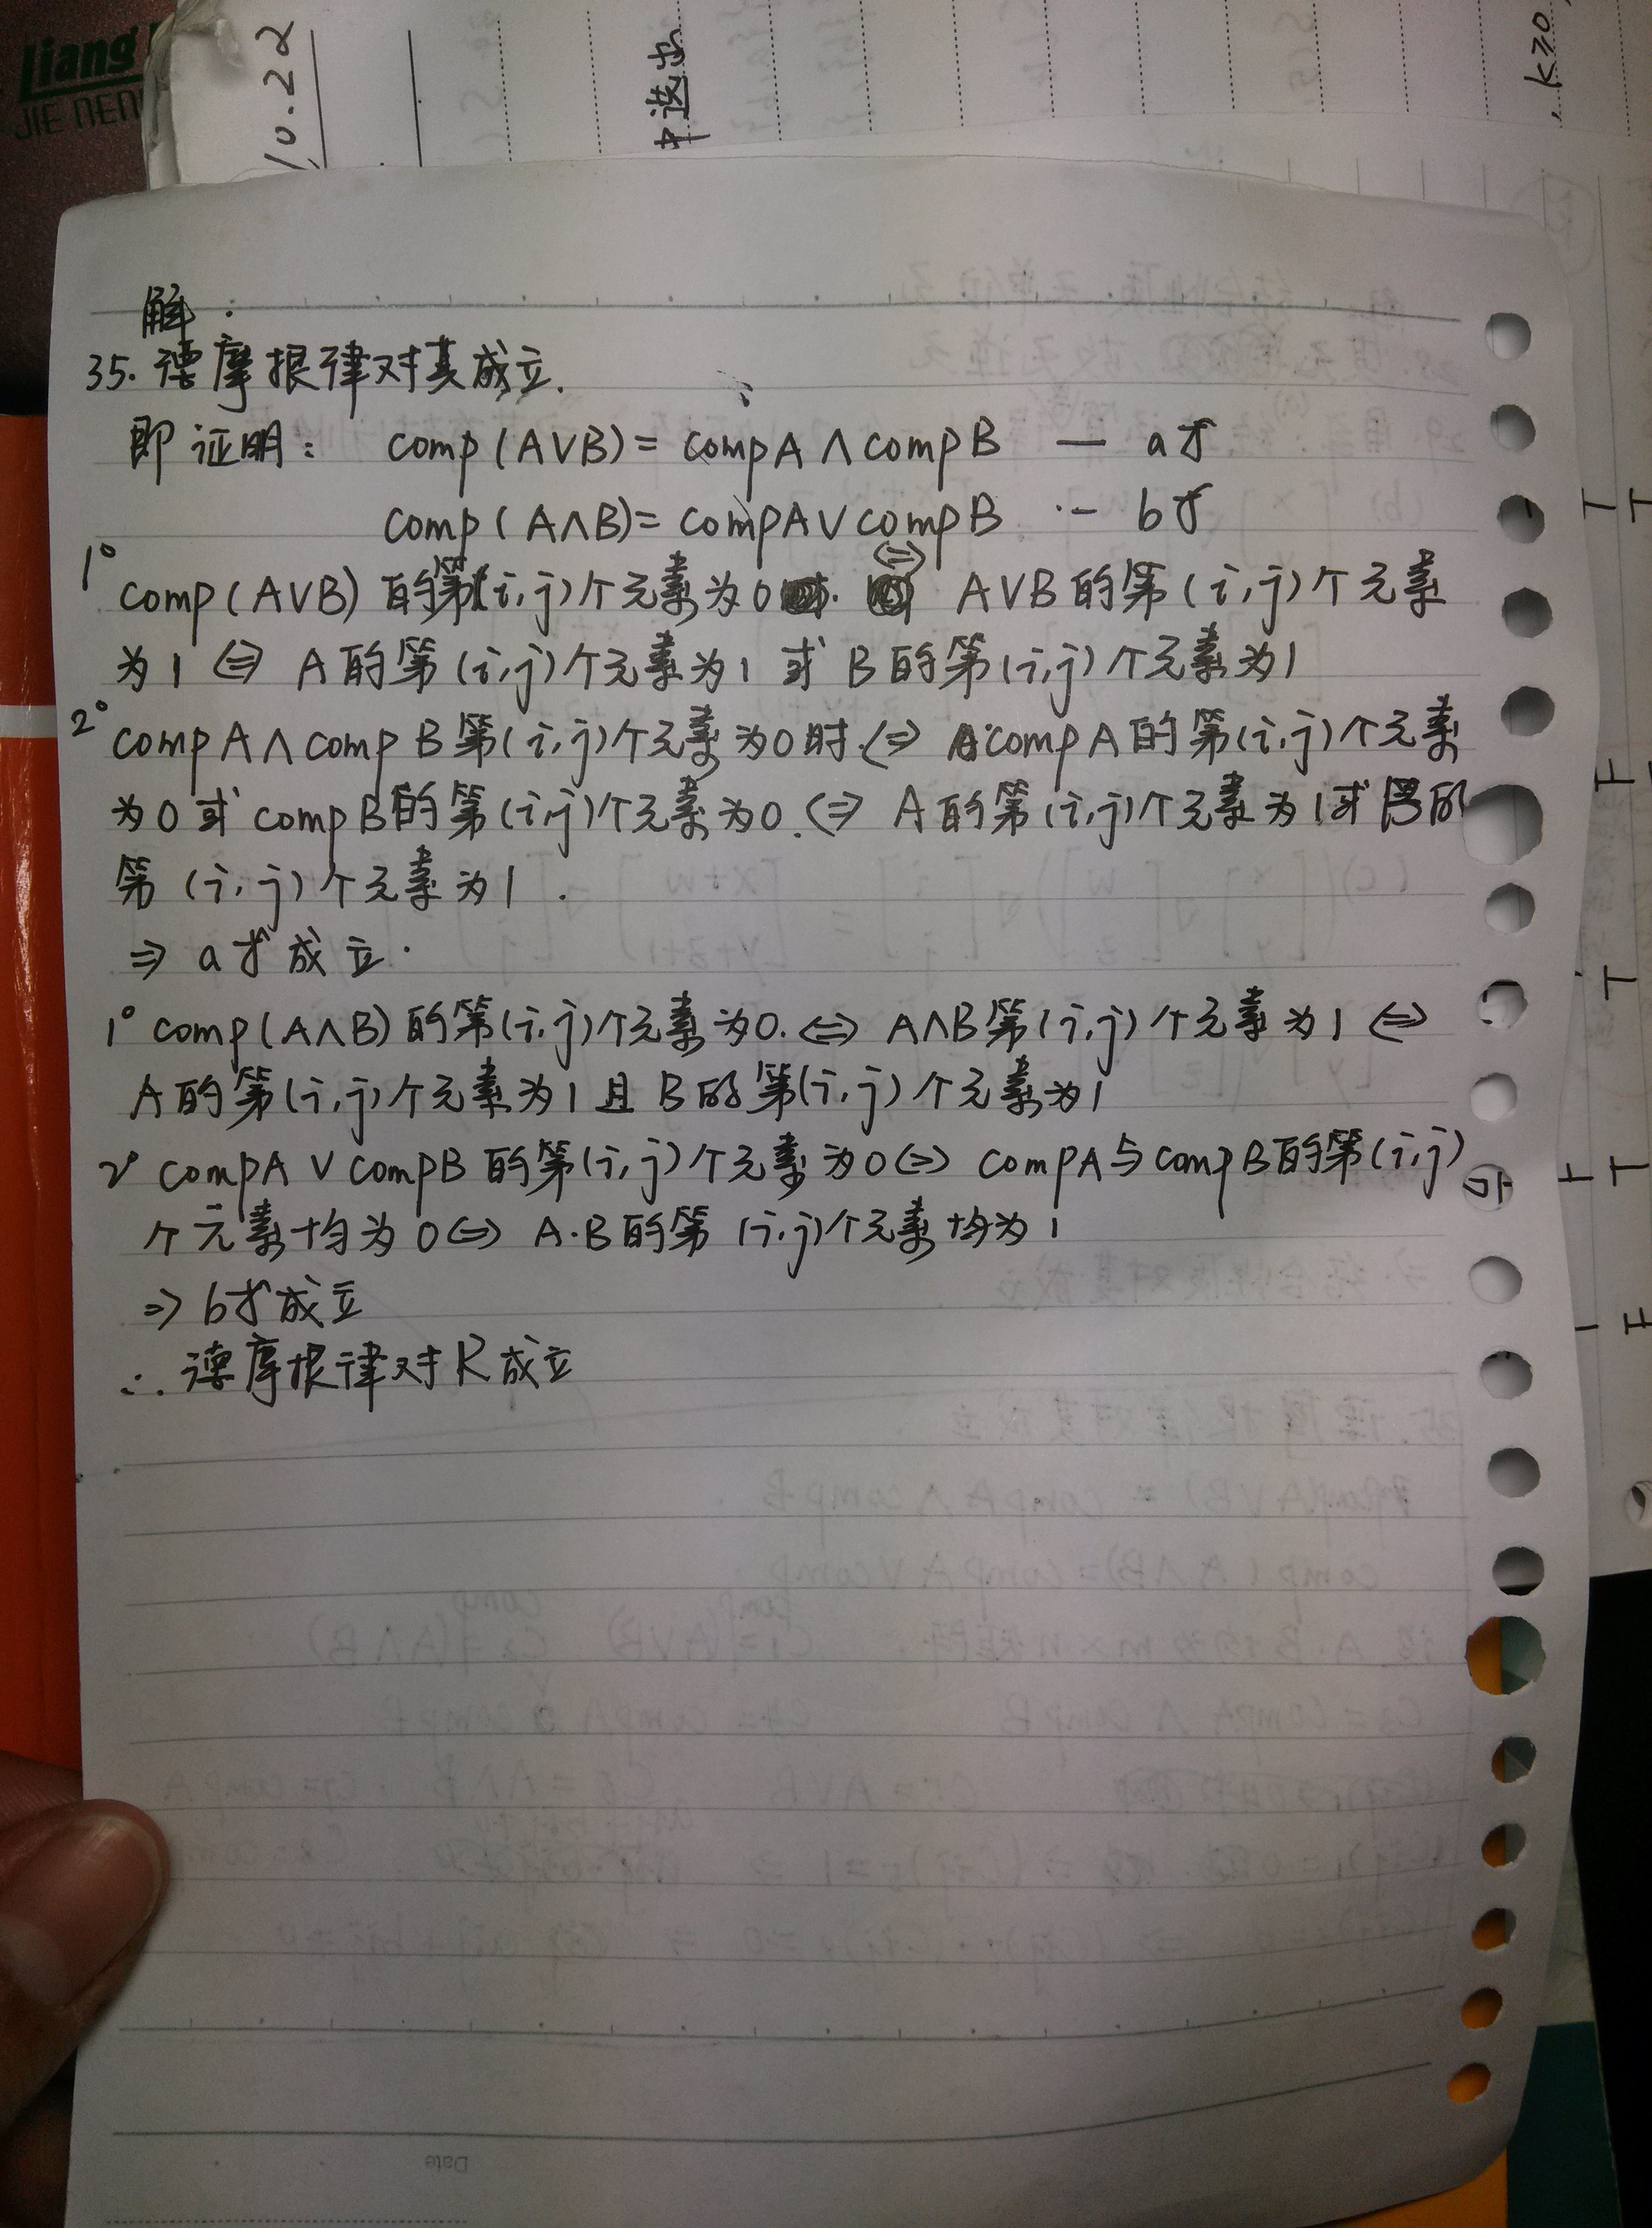 liang
JIE NEN
10.22
中选出
, k≥0
解:
35. 德摩根律对其成立.
即证明: comp(A∨B)=compA∧compB — a式
comp(A∧B)=compA∨compB — b式
1° comp(A∨B)的第(i,j)个元素为0 ⇔ A∨B的第(i,j)个元素
为1 ⇔ A的第(i,j)个元素为1 或 B的第(i,j)个元素为1
2° compA∧compB第(i,j)个元素为0时.⇔ compA的第(i,j)个元素
为0或compB的第(i,j)个元素为0.⇔ A的第(i,j)个元素为1或B的
第(i,j)个元素为1.
⇒ a式成立.
1° comp(A∧B)的第(i,j)个元素为0.⇔ A∧B第(i,j)个元素为1⇔
A的第(i,j)个元素为1且B的第(i,j)个元素为1
2° compA∨compB的第(i,j)个元素为0⇔ compA与compB的第(i,j)
个元素均为0⇔ A.B的第(i,j)个元素均为1
⇒ b式成立
∴德摩根律对K成立
Date